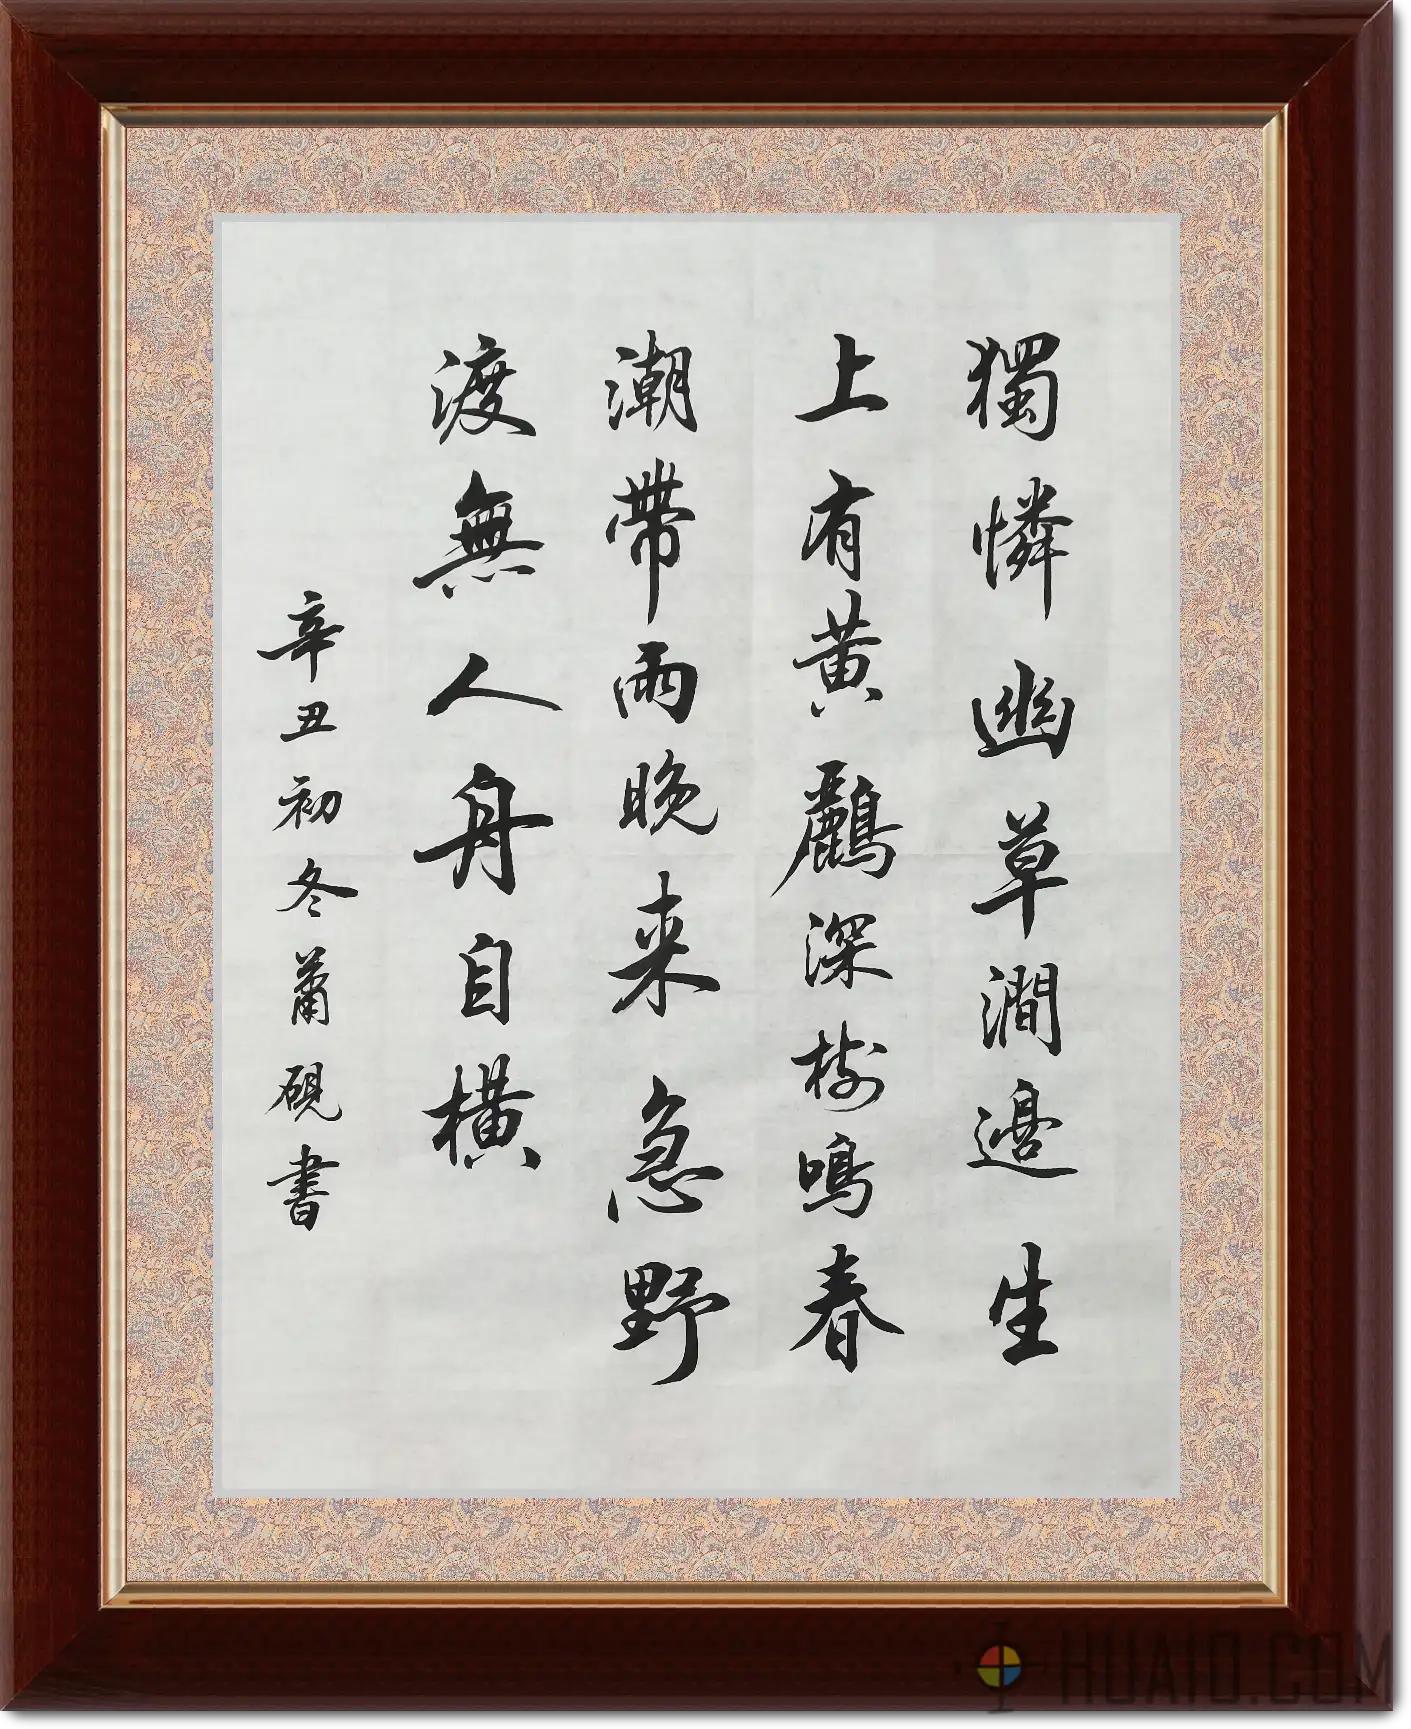 獨憐幽草澗邊生
上有黄鸝深樹鳴春
潮帶雨晚来急野
渡無人舟自横
辛丑初冬蕭硯書
HUAIO.COM